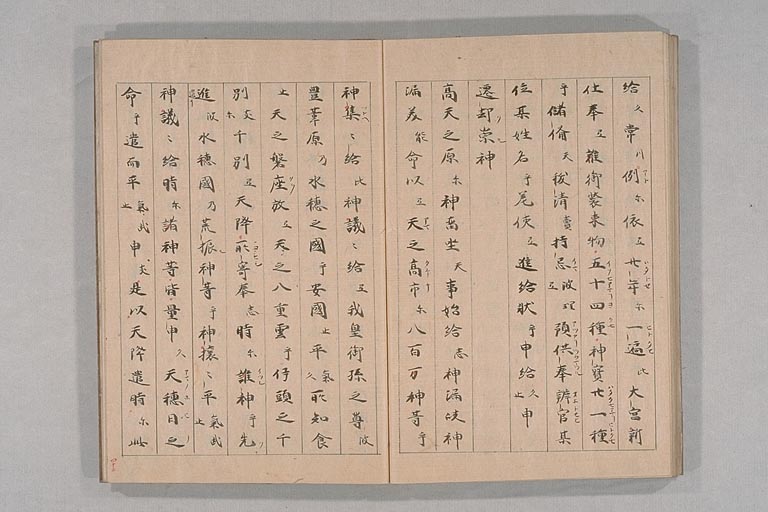 給久常乃例尓依弖廿年尓一遍比大宮新
仕奉弖雜御裝束物五十四種神寶廿一種
乎儲備天祓清賣持忌波理預供奉辨官某
位某姓名乎差使弖進給狀乎申給久申
遷却祟神
高天之原尓神留坐天事始給志神漏岐神
漏美能命以弖天之高市尓八百万神等乎
神集々給比神議々給弖我皇御孫之尊波
豊葦原乃水穗之國乎安國止平氣久所知食
止天之磐座放弖天之八重雲乎伊頭之千
別尓千別弖天降所寄奉志時尓誰神乎先
進波水穗國乃荒振神等乎神攘々平氣武止
神議々給時尓諸神等皆量申久天穗日之
命乎遣而平氣武止申支是以天降遣時尓此